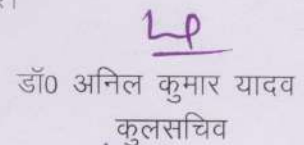 डॉ0 अनिल कुमार यादव
कुलसचिव